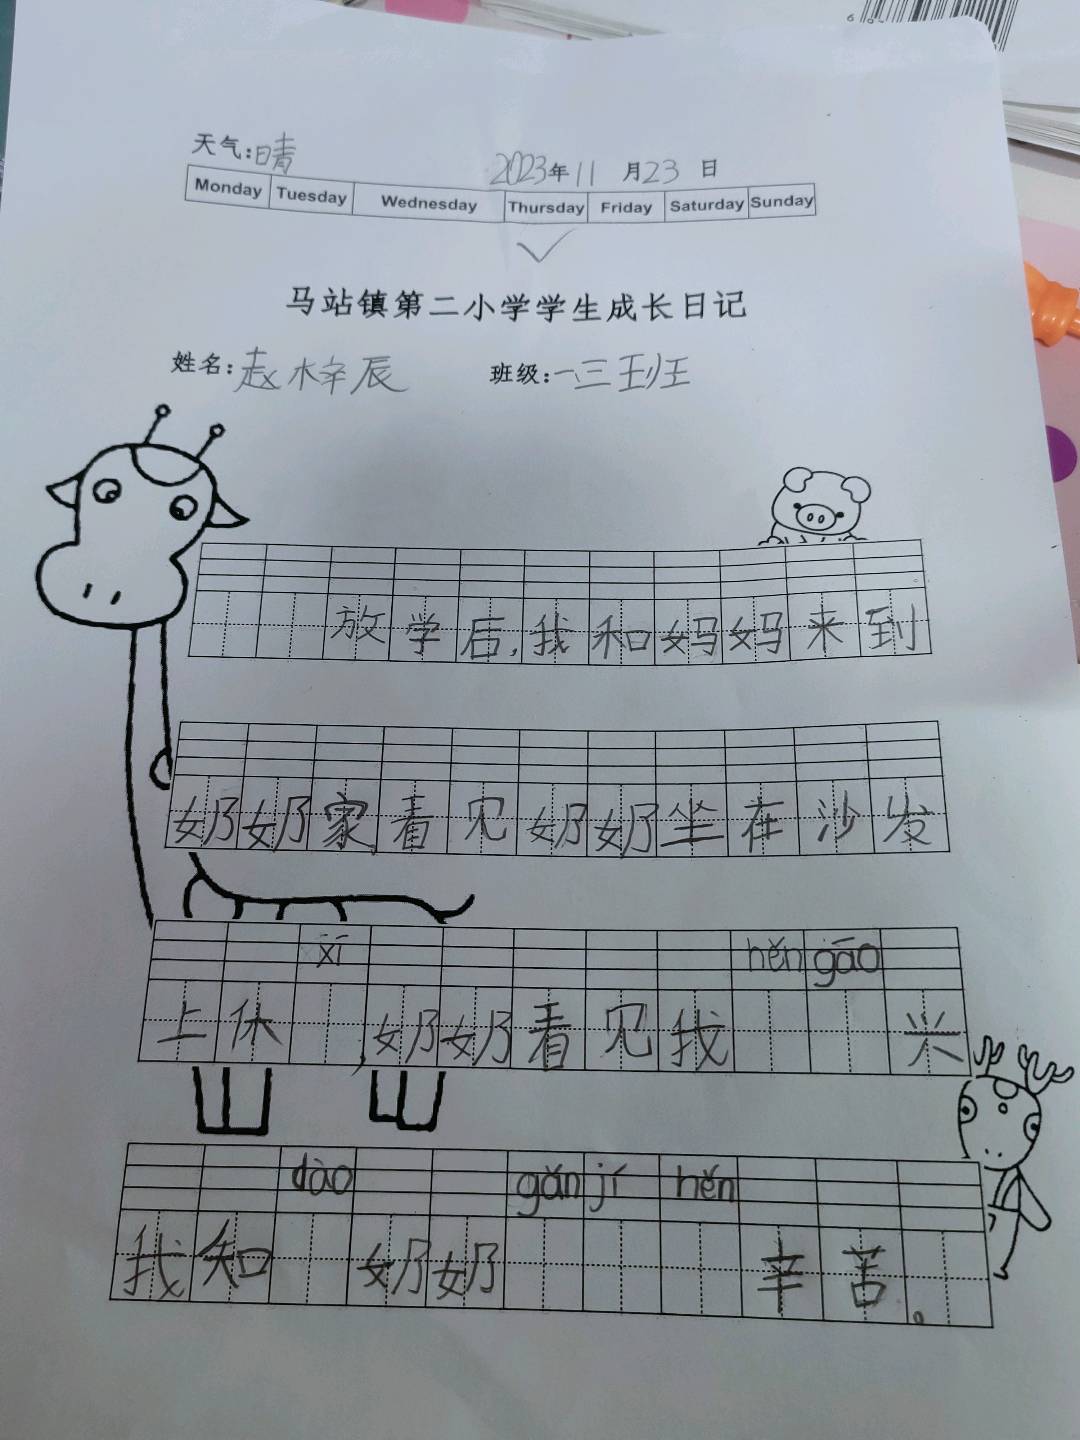 天气:晴
2023年11月23日
Monday Tuesday Wednesday Thursday Friday Saturday Sunday
马站镇第二小学学生成长日记
姓名:赵梓辰 班级:一三班
放学后,我和妈妈来到
奶奶家,看见奶奶坐在沙发
上休xī,奶奶看见我hěngāo兴
我知dào奶奶gǎnjíhěn辛苦。